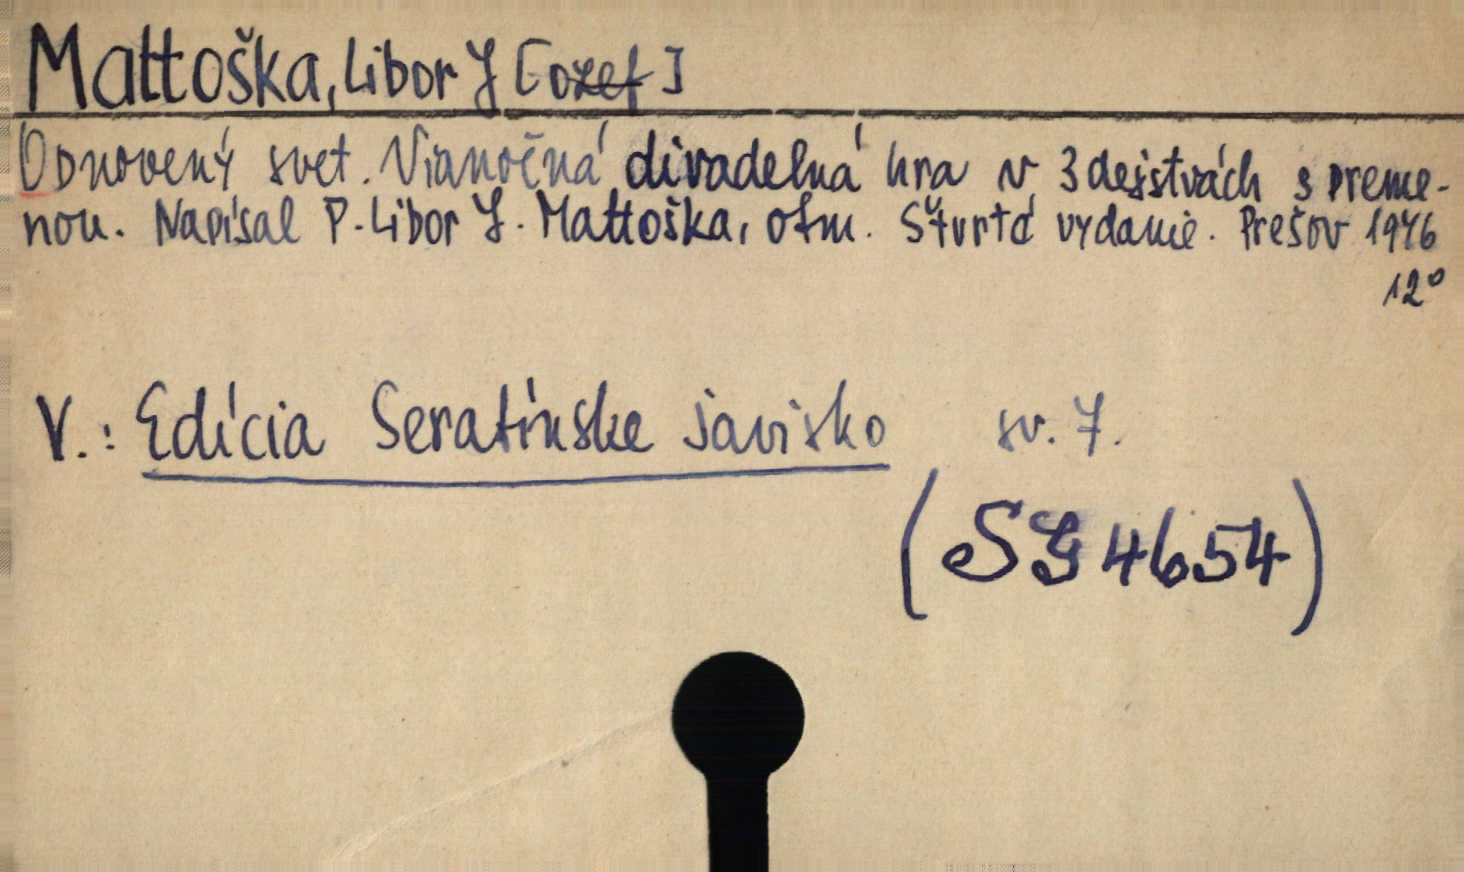 Mattoška, Libor J [ozef]
Obnovený svet. Vianočná divadelná hra v 3 dejstvách s preme-
nou. Napísal P. Libor J. Mattoška, ofm. Štvrté vydanie. Prešov 1946
12°
V.: Edícia Serafínske javisko sv. 7.
(SG 4654)